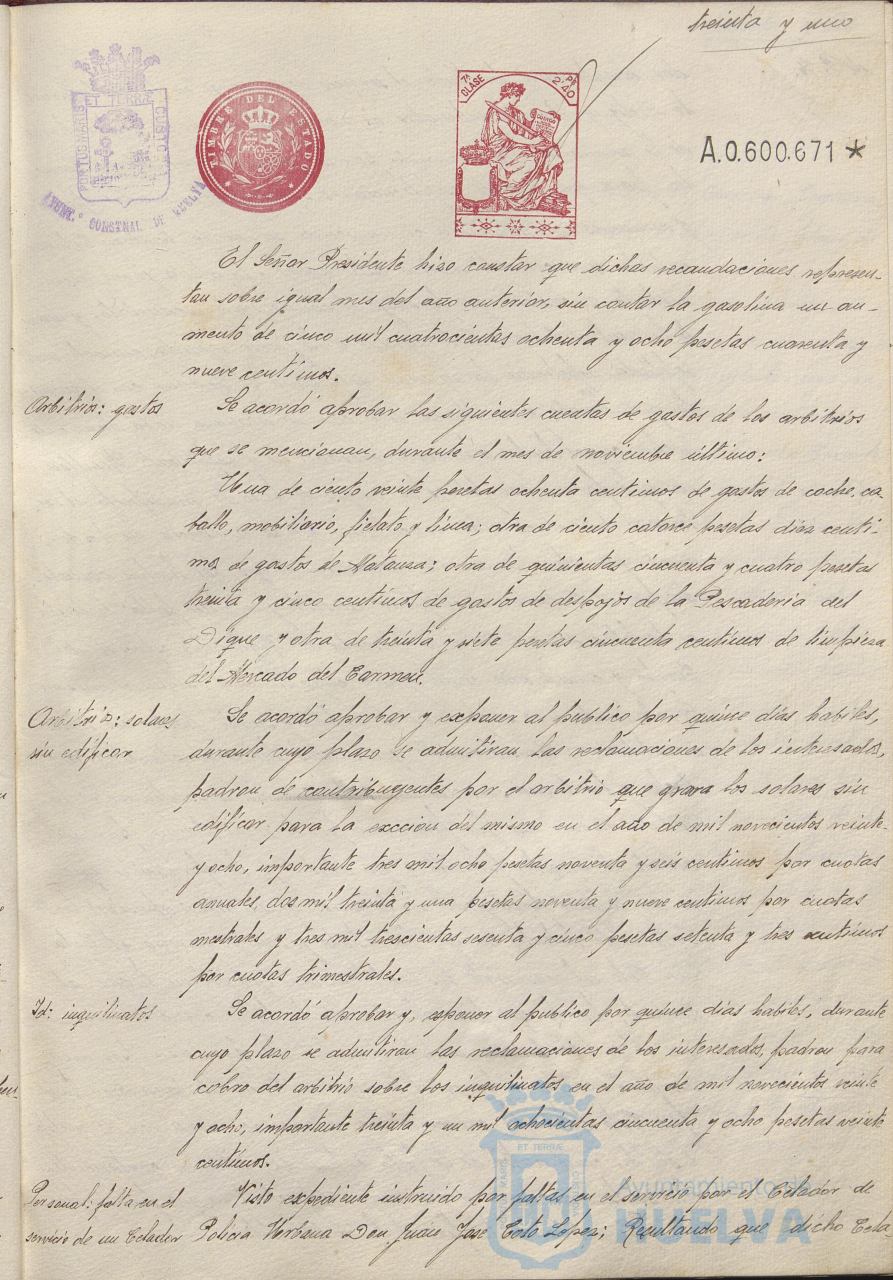 treinta y uno
ET TERRAE
PORTUS MARIS
CUSTODIA
AYUNT.º CONSTNAL DE HUELVA
TIMBRE DEL ESTADO
7ª CLASE
2 PTS 40
A.0.600.671 *
El Señor Presidente hizo constar que dichas recaudaciones represen-
tan sobre igual mes del año anterior, sin contar la gasolina un au-
mento de cinco mil cuatrocientas ochenta y ocho pesetas cuarenta y
nueve centimos.
Arbitrios: gastos
Se acordó aprobar las siguientes cuentas de gastos de los arbitrios
que se mencionan, durante el mes de noviembre último:
Una de ciento veinte pesetas ochenta centimos de gastos de coche, ca-
ballo, mobiliario, fielato y linea; otra de ciento catorce pesetas diez centi-
mos de gastos de Matanza; otra de quinientas cincuenta y cuatro pesetas
treinta y cinco centimos de gastos de despojos de la Pescaderia del
Dique y otra de treinta y siete pesetas cincuenta centimos de limpieza
del Mercado del Carmen.
Arbitrio: solares
sin edificar
Se acordó aprobar y exponer al publico por quince días habiles,
durante cuyo plazo se admitiran las reclamaciones de los interesados,
padron de contribuyentes por el arbitrio que grava los solares sin
edificar para la exccion del mismo en el año de mil novecientos veinte-
y ocho, importante tres mil ocho pesetas noventa y seis centimos por cuotas
anuales, dos mil treinta y una pesetas noventa y nueve centimos por cuotas
mestrales y tres mil trescientas sesenta y cinco pesetas setenta y tres centimos
por cuotas trimestrales.
Id: inquilinatos
Se acordó aprobar y, exponer al publico por quince días habiles, durante
cuyo plazo se admitiran las reclamaciones de los interesados, padron para
cobro del arbitrio sobre los inquilinatos en el año de mil novecientos veinte
y ocho, importante treinta y un mil ochocientas cincuenta y ocho pesetas veinte
centimos.
Personal: falta en el
servicio de un Celador
Visto expediente instruido por faltas en el servicio por el Celador de
Policia Urbana Don Juan José Toto Lopez; Resultando que dicho Cela-
ET TERRAE
Ayuntamiento de
HUELVA